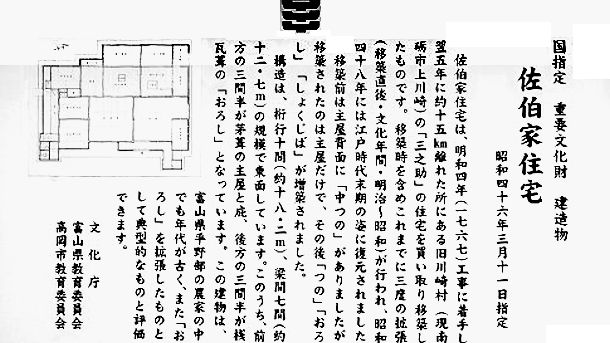 国指定　重要文化財　建造物
佐伯家住宅
昭和四十六年三月十一日指定
佐伯家住宅は、明和四年（一七六七）工事に着手し
翌五年に約十五km離れた所にある旧川崎村（現南
砺市上川崎）の「三之助」の住宅を買い取り移築し
たものです。移築時を含めこれまでに三度の拡張
（移築直後・文化年間・明治～昭和）が行われ、昭和
四十八年には江戸時代末期の姿に復元されました
移築前は主屋背面に「中つの」がありましたが
移築されたのは主屋だけで、その後「つの」「おろ
し」「しょくじば」が増築されました。
構造は、桁行十間（約十八・二m）、梁間七間（約
十二・七m）の規模で東面しています。このうち、前
方の三間半が茅葺の主屋と庇、後方の三間半が桟
瓦葺の「おろし」となっています。この建物は、
富山県平野部の農家の中
でも年代が古く、また「お
ろし」を拡張したものと
して典型的なものと評価
できます。
文化庁
富山県教育委員会
高岡市教育委員会